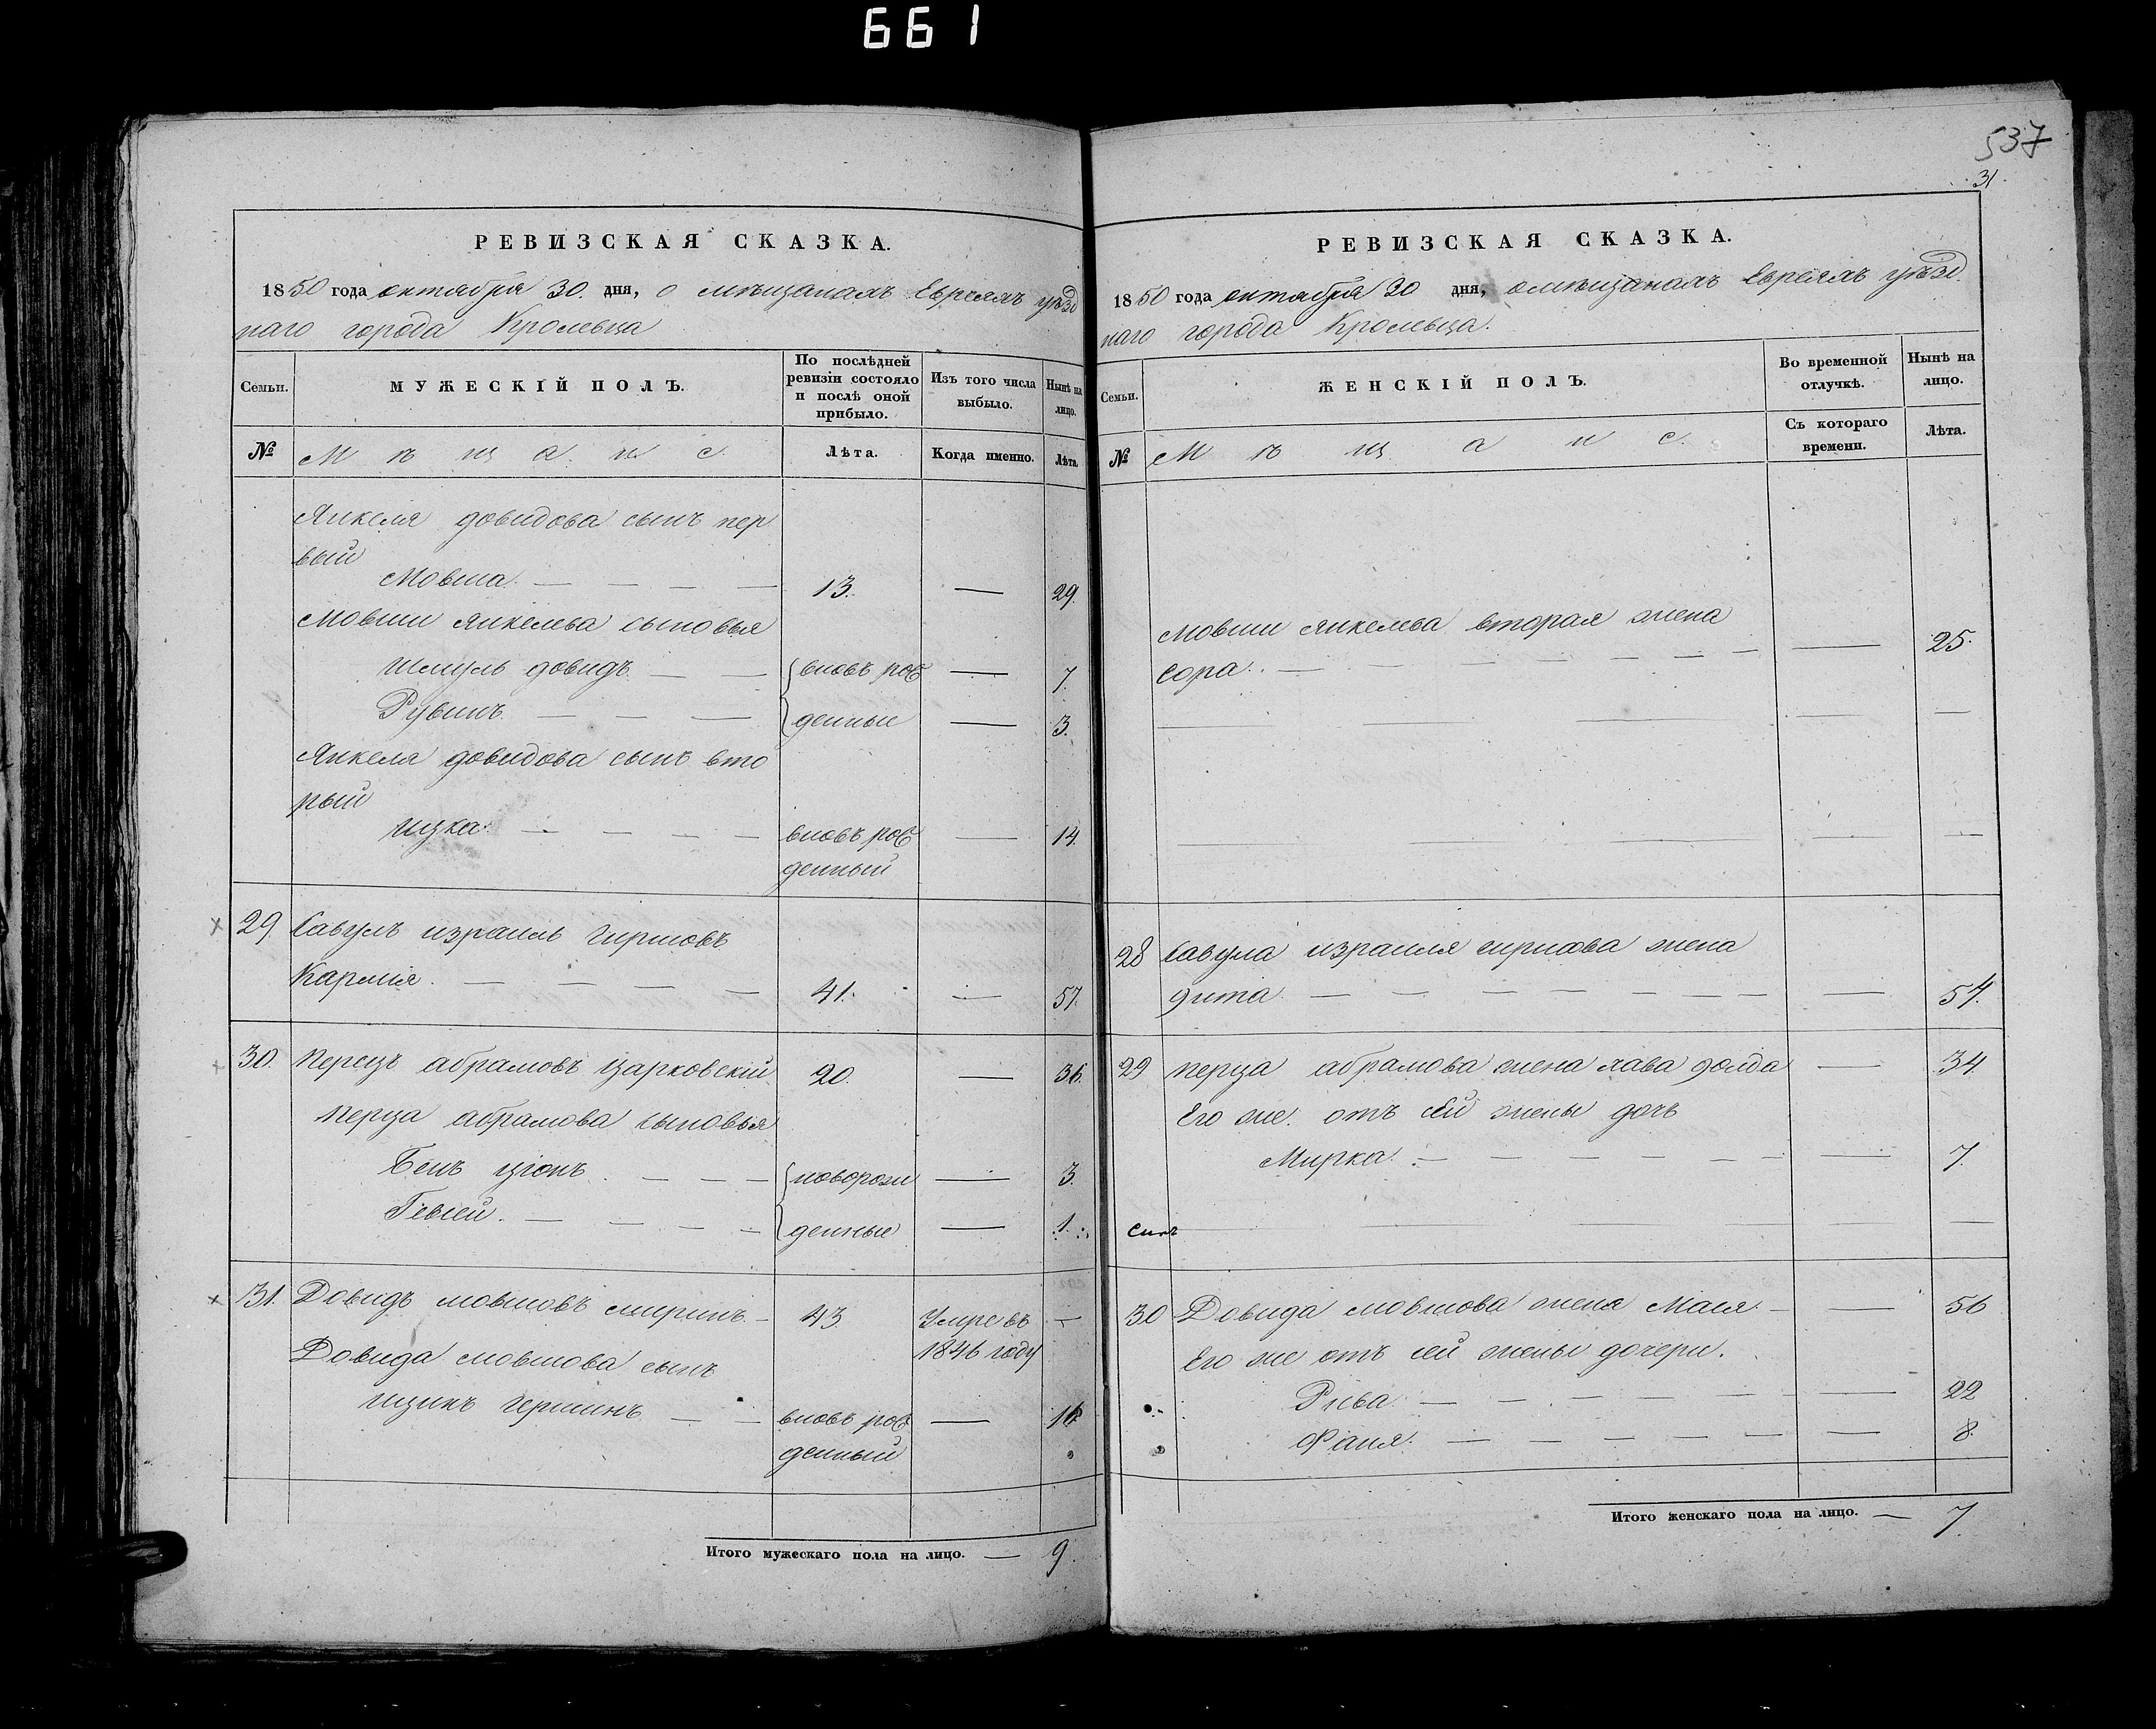 661
537
31
РЕВИЗСКАЯ СКАЗКА.
1850 года октября 30. дня, о мѣщанахъ Евреяхъ уѣзд
наго города Кролевца
Семьи.
МУЖЕСКІЙ ПОЛЪ.
По послѣдней
ревизіи состояло
и послѣ оной
прибыло.
Изъ того числа
выбыло.
Нынѣ на
лицо.
№
Мѣщане
Лѣта.
Когда именно.
Лѣта.
Янкеля довидова сынъ пер
вый
Мовша. — — — — 13. — 29.
Мовши янкелева сыновья
Шмуль довидъ — — вновь рож — 7.
Рувинъ — — — денные — 3.
Янкеля довидова сынъ вто
рый
Ицка. — — — — вновь рож — 14.
денный
29. Савулъ израиль гиршовъ
Кармія. — — — — 41. — 57.
30. Перецъ абрамовъ Царковскій 20. — 36.
Перца абрамова сыновья
Бенъ ціонъ. — — — новорож — 3.
Гевсей. — — — — денные — 1.
31. Довидъ мовшовъ смиринъ. — 43. Умре въ —
1846 году
Довида мовшова сынъ
Ицикъ гершинъ — — вновь рож — 16
денный
Итого мужескаго пола на лицо. — 9.
РЕВИЗСКАЯ СКАЗКА.
1850 года октября 30 дня, о мѣщанахъ Евреяхъ уѣзд
наго города Кролевца.
Семьи.
ЖЕНСКІЙ ПОЛЪ.
Во временной
отлучкѣ.
Нынѣ на
лицо.
№
Мѣщане.
Съ котораго
времени.
Лѣта.
Мовши янкелева вторая жена
Сора. — — — — — — — 25.
28 Савула израиля гиршова жена
Дита. — — — — — — — 54.
29 Перца абрамова жена хава золда — 34.
Его же. отъ сей жены дочь
Мирка. — — — — — — 7.
30 Довида мовшова жена Мася. — — 56
Его же отъ сей жены дочери.
Рива. — — — — — — 22
Фаня. — — — — — — 8.
Итого женскаго пола на лицо. — 7